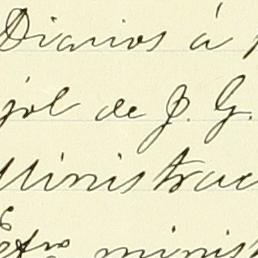 Diarios á
jol de J. G.
Ministrac
minist